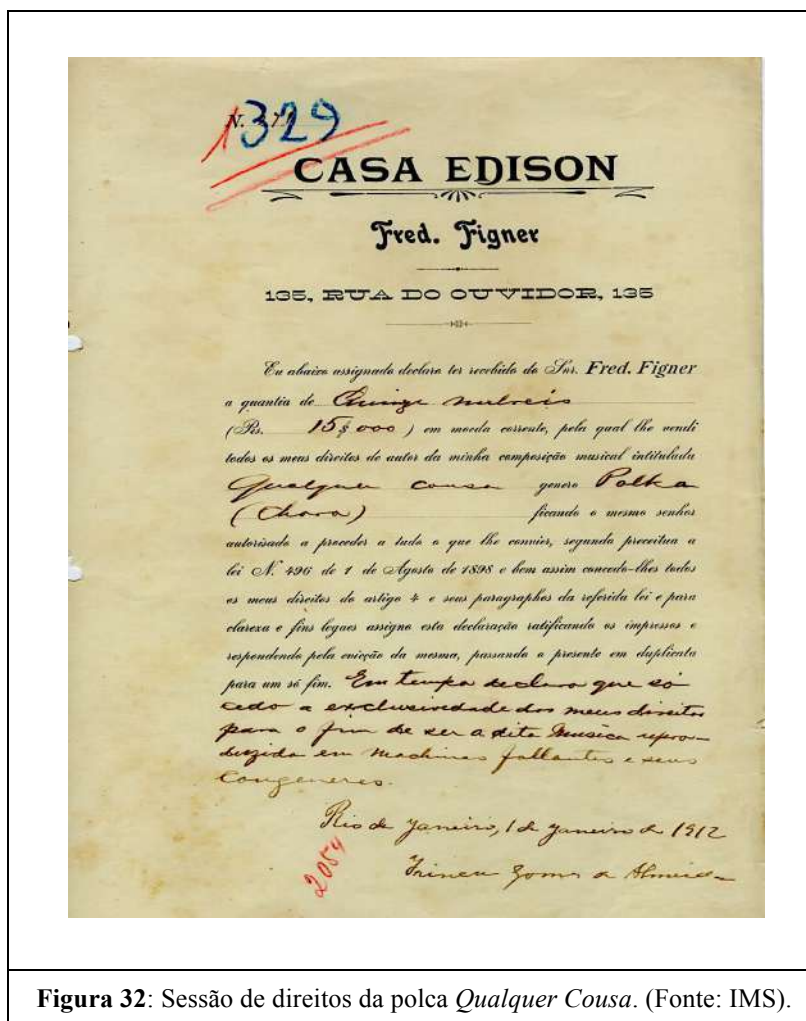 N.
1329
CASA EDISON
Fred. Figner
135, RUA DO OUVIDOR, 135
Eu abaixo assignado declaro ter recebido do Snr. Fred. Figner
a quantia de Quinze milreis
(Rs. 15$000) em moeda corrente, pela qual lhe vendi
todos os meus direitos de autor da minha composição musical intitulada
Qualquer cousa genero Polka
(Choro) ficando o mesmo senhor
autorisado a proceder a tudo o que lhe convier, segundo preceitua a
lei N. 496 de 1 de Agosto de 1898 e bem assim concedo-lhes todos
os meus direitos do artigo 4 e seus paragraphos da referida lei e para
clareza e fins legaes assigno esta declaração ratificando os impressos e
respondendo pela evicção da mesma, passando o presente em duplicata
para um só fim. Em tempo declaro que só
cedo a exclusividade dos meus direitos
para o fim de ser a dita Musica repro-
duzida em Machinas fallantes e seus
Congeneres.
Rio de Janeiro, 1 de Janeiro de 1912
2054
Irineu Gomes de Almeida
Figura 32: Sessão de direitos da polca Qualquer Cousa. (Fonte: IMS).